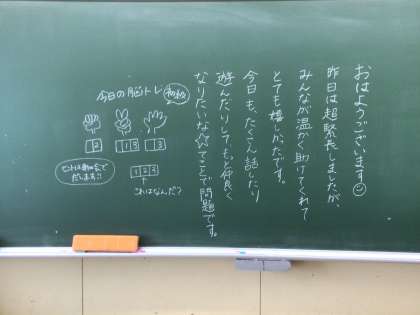 おはようございます☺
昨日は超緊張しましたが、
みんなが温かく助けてくれて
とても嬉しかったです。
今日も、たくさん話したり
遊んだりしてもっと仲良く
なりたいな☆☆てことで問題です。
今日の脳トレ 初級
2 1 3 3
ヒントは朝の会で
だします!!
1 2 3
↑
これはなんだ?